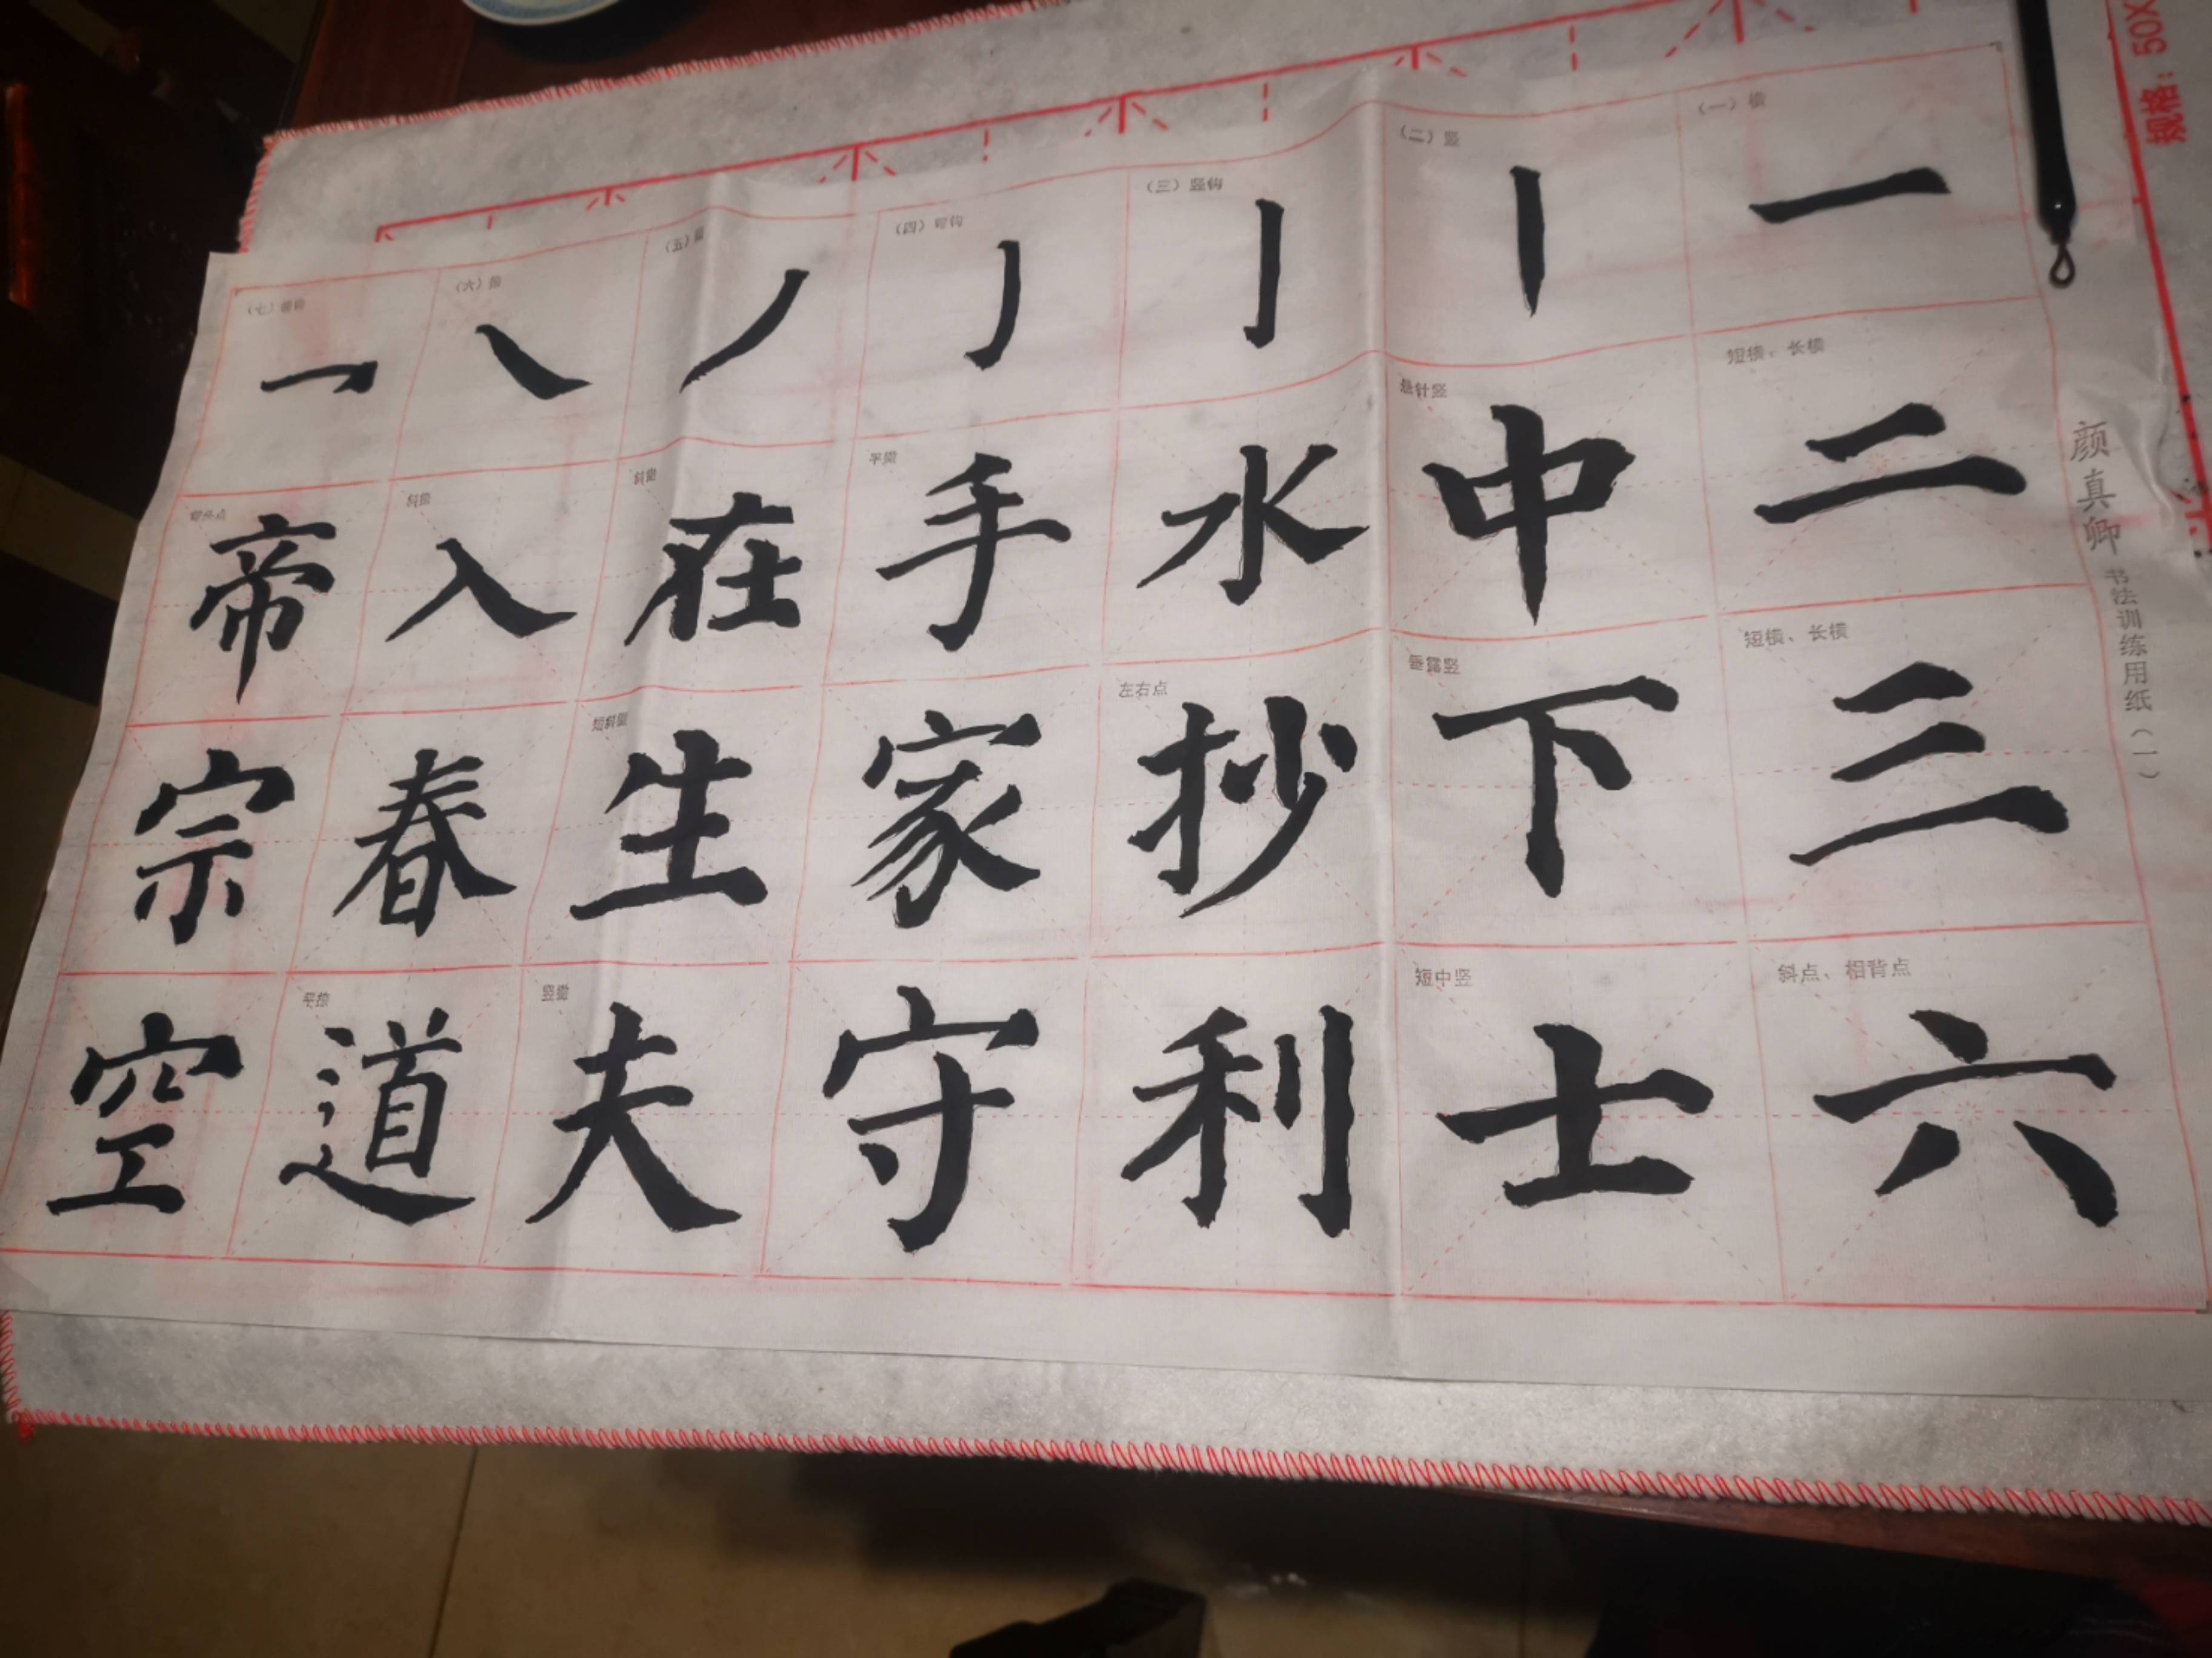 规格：50X
颜真卿书法训练用纸（一）
（一）横
一
短横、长横
二
短横、长横
三
斜点、相背点
六
（二）竖
丨
悬针竖
中
垂露竖
下
短中竖
士
（三）竖钩
亅
水
左右点
抄
利
（四）弯钩
亅
平撇
手
家
守
（五）撇
丿
斜撇
在
短斜撇
生
竖撇
夫
（六）捺
㇏
斜捺
入
春
平捺
道
（七）横钩
乛
帝
宗
空